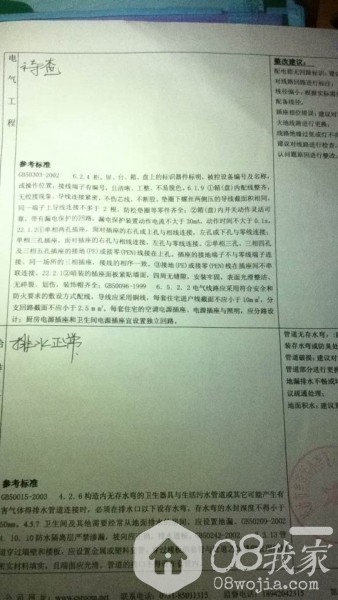 电气工程
待查
整改建议：
配电箱无回路标识：建议
对线路回路进行标注；
线径偏小：根据实际
配备线径。
插座相位错误：建议对
火地线路进行更换；
参考标准
GB50303-2002 6.2.4 柜、屏、台、箱、盘上的标识器件标明，被控设备编号及名称，
或操作位置，接线端子有编号，且清晰、工整、不易褪色。6.1.9①箱(盘)内配线整齐，
无绞接现象。导线连接紧密，不伤芯线，不断股。垫圈下螺丝两侧压的导线截面积相同，
同一端子上导线连接不多于 2 根，防松垫圈等零件齐全；②箱(盘)内开关动作灵活可
靠，带有漏电保护的回路，漏电保护装置动作电流不大于 30mA，动作时间不大于 0.1s。
22.1.2①单相两孔插座，面对插座的右孔或上孔与相线连接，左孔或下孔与零线连接；
单相三孔插座，面对插座的右孔与相线连接，左孔与零线连接。②单相三孔、三相四孔
及三相五孔插座的接地(PE)或接零(PEN)线接在上孔。插座的接地端子不与零线端子连
接。同一场所的三相插座，接线的相序一致。③接地(PE)或接零(PEN)线在插座间不串
联连接。22.2.1③暗装的插座面板紧贴墙面，四周无缝隙，安装牢固，表面光滑整洁、
无碎裂、划伤，装饰帽齐全；GB50096-1999 6.5.2.2 电气线路应采用符合安全和
防火要求的敷设方式配线，导线应采用铜线，每套住宅进户线截面不应小于 10m㎡，分
支回路截面不应小于 2.5m㎡。每套住宅的空调电源插座、电源插座与照明，应分路设
计；厨房电源插座和卫生间电源插座宜设置独立回路。
排水正常
管道无存水弯：
管道破损：建议对
部分进行更换
地漏排水不畅或
议疏通处理；
地面积水：建议
参考标准
GB50015-2003 4.2.6 构造内无存水弯的卫生器具与生活污水管道或其它可能产生有
害气体的排水管道连接时，必须在排水口以下设存水弯。存水弯的水封深度不得小于
50mm。4.5.7 卫生间及其他需要经常从地面排水的房间，应设置地漏。GB50209-2002
08我家
08wojia.com